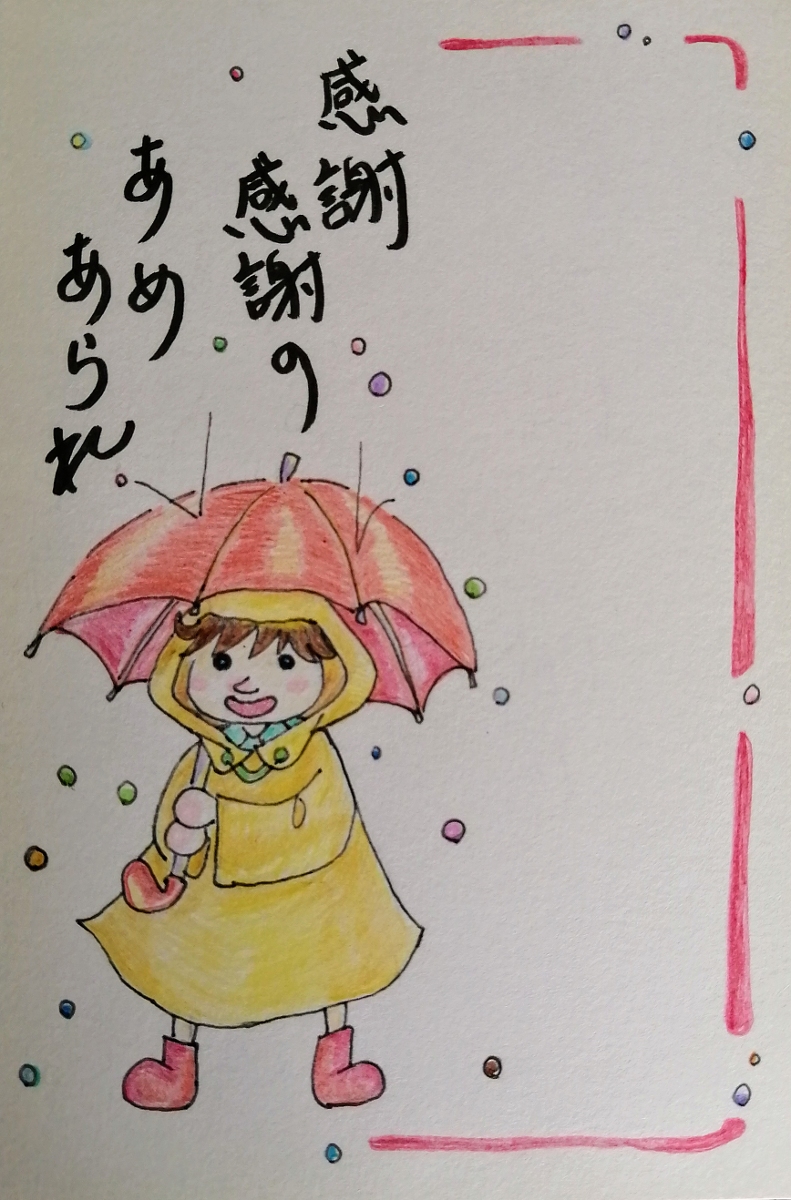 感謝
感謝の
あめ
あられ